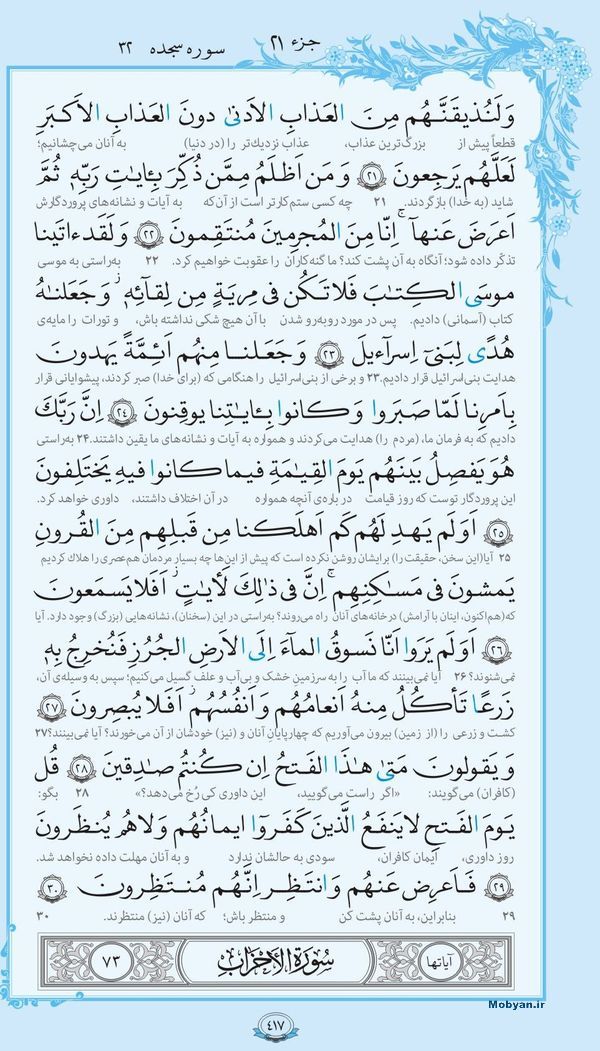 جزء ۲۱
سوره سجده ۳۲
وَلَنُذیقَنَّهُم مِنَ العَذابِ الاَدنیٰ دونَ العَذابِ الاَکبَرِ
قطعاً پیش از بزرگ‌ترین عذاب، عذاب نزدیك‌تر را (در دنیا) به آنان می‌چشانیم؛
لَعَلَّهُم یَرجِعونَ ﴿۲۱﴾ وَ مَن اَظلَمُ مِمَّن ذُکِّرَ بِـٔایاتِ رَبِّهٖ ثُمَّ
شاید (به خدا) بازگردند. ۲۱ چه کسی ستم‌کارتر است از آن‌که به آیات و نشانه‌های پروردگارش
اَعرَضَ عَنهآ ۚ اِنّا مِنَ المُجرِمینَ مُنتَقِمونَ ﴿۲۲﴾ وَ لَقَد ءاتَینا
تذکّر داده شود؛ آنگاه به آن پشت کند؟ ما گنه‌کاران را عقوبت خواهیم کرد. ۲۲ به‌راستی به موسی
موسَی الکِتٰبَ فَلا تَکُن فی مِریَةٍ مِن لِقآئِهٖ ۖ وَ جَعَلنٰهُ
کتاب (آسمانی) دادیم. پس در مورد روبه‌رو شدن با آن هیچ شکی نداشته باش، و تورات را مایه‌ی
هُدًی لِبَنیٓ اِسرآءیلَ ﴿۲۳﴾ وَ جَعَلنا مِنهُم اَئِمَّةً یَهدونَ
هدایت بنی‌اسرائیل قرار دادیم.۲۳ و برخی از بنی‌اسرائیل را هنگامی که (برای خدا) صبر کردند، پیشوایانی قرار
بِاَمرِنا لَمّا صَبَروا وَ کانوا بِـٔایٰتِنا یوقِنونَ ﴿۲۴﴾ اِنَّ رَبَّکَ
دادیم که به فرمان ما، (مردم را) هدایت می‌کردند و همواره به آیات و نشانه‌های ما یقین داشتند.۲۴ به‌راستی
هُوَ یَفصِلُ بَینَهُم یَومَ القِیٰمَةِ فیما کانوا فیهِ یَختَلِفونَ
این پروردگار توست که روز قیامت درباره‌ی آنچه همواره در آن اختلاف داشتند، داوری خواهد کرد.
﴿۲۵﴾ اَوَلَم یَهدِ لَهُم کَم اَهلَکنا مِن قَبلِهِم مِنَ القُرونِ
۲۵ آیا(این سخن، حقیقت را) برایشان روشن نکرده است که پیش از این‌ها چه بسیار مردمان هم‌عصری را هلاك کردیم
یَمشونَ فی مَسٰکِنِهِم ۚ اِنَّ فی ذٰلِکَ لَأٰیٰتٍ ۖ اَفَلا یَسمَعونَ
که(هم‌اکنون، اینان با آرامش) درخانه‌های آنان راه می‌روند؟ به‌راستی در این (سخنان)، نشانه‌هایی (بزرگ) وجود دارد. آیا
﴿۲۶﴾ اَوَلَم یَرَوا اَنّا نَسوقُ المآءَ اِلَی الاَرضِ الجُرُزِ فَنُخرِجُ بِهٖ
نمی‌شنوند؟ ۲۶ آیا نمی‌بینند که ما آب را به سرزمینِ خشک و بی‌آب و علف گسیل می‌کنیم؛ سپس به وسیله‌ی آن،
زَرعًا تَأکُلُ مِنهُ اَنعامُهُم وَ اَنفُسُهُم ۖ اَفَلا یُبصِرونَ ﴿۲۷﴾
کشت و زرعی را(از زمین) بیرون می‌آوریم که چهارپایانِ آنان و (نیز) خودشان از آن می‌خورند؟ آیا نمی‌بینند؟۲۷
وَ یَقولونَ مَتیٰ هٰذَا الفَتحُ اِن کُنتُم صٰدِقینَ ﴿۲۸﴾ قُل
(کافران) می‌گویند: «اگر راست می‌گویید، این داوری کی رُخ می‌دهد؟» ۲۸ بگو:
یَومَ الفَتحِ لا یَنفَعُ الَّذینَ کَفَروٓا ایمانُهُم وَ لا هُم یُنظَرونَ
روز داوری، ایمان کافران، سودی به حالشان ندارد و به آنان مهلت داده نخواهد شد.
﴿۲۹﴾ فَاَعرِض عَنهُم وَانتَظِر اِنَّهُم مُنتَظِرونَ ﴿۳۰﴾
۲۹ بنابراین، به آنان پشت کن و منتظر باش؛ که آنان (نیز) منتظرند. ۳۰
آیاتها سُورَةُ الأَحزَابِ ۷۳
Mobyan.ir
۴۱۷